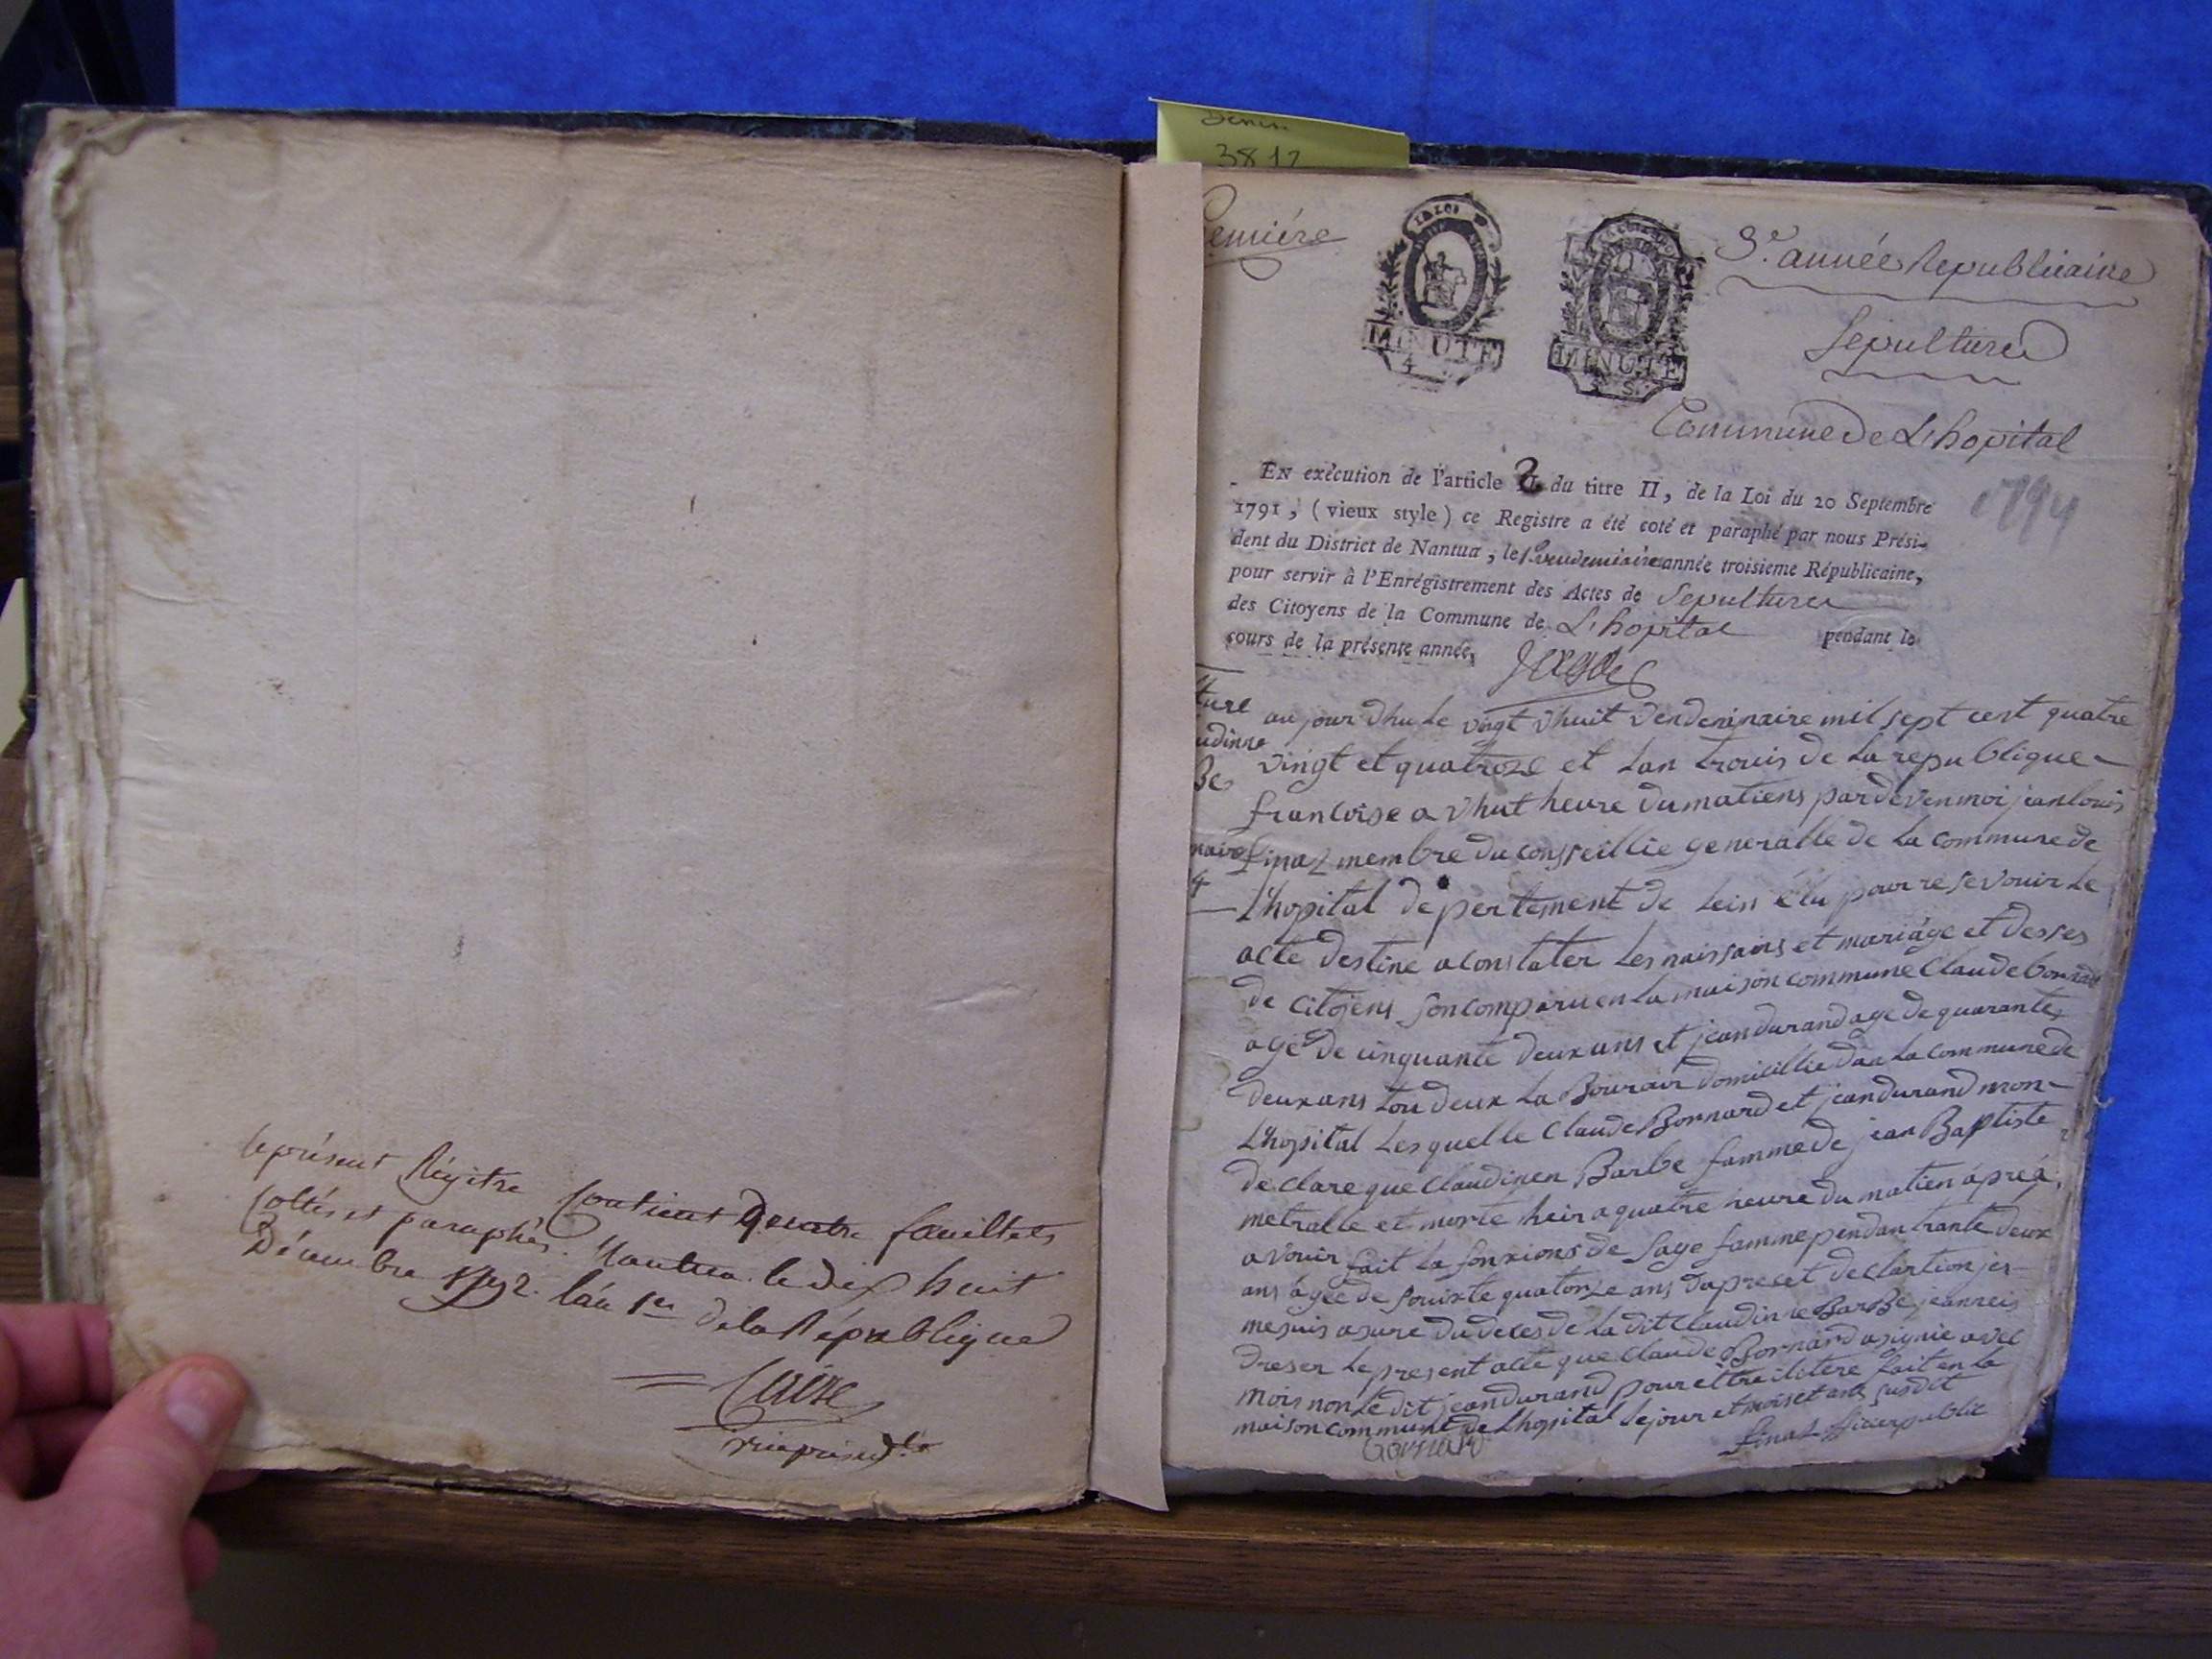 Le présent Régitre Contient quatre feuillets
Cottés et paraphés. Nantua le dix huit
Décembre 1792. l'an 1er de la République
vice présid.t
3812
3e. année Republicaine
Sepultures
LA LOI
MINUTE
4
MINUTE
S.
Commune de L'hopital
1794
En exécution de l'article 2 du titre II, de la Loi du 20 Septembre
1791, (vieux style) ce Registre a été coté et paraphé par nous Prési-
dent du District de Nantua, le 1. vendemiaire année troisieme Républicaine,
pour servir à l'Enrégistrement des Actes de Sepultures
des Citoyens de la Commune de L'hopital pendant le
cours de la présente année,
ture
udinne
Be
naire
4
au jour dhuhe vingt vhuit vendeminaire mil sept cent quatre
vingt et quatroze et lan trouis de la republique
francoise a vhut heure du matiens par deven moi jean louis
finaz membre du consseillie generalle de la commune de
L'hopital depertement de lein élu pour resevouir le
acte destine a constater les naissains et mariage et desses
de citoiens son comparu en la maison commune Claude bonnard
agé de cinquante deux ans et jean durand age de quarante
deux ans tou deux la Bourair domicillie dan la commune de
L'hopital lesquelle Claude Bonnard et jean durand mon
declare que Claudinen Barbe famme de jean Baptiste
metralle et morte heir a quatre heure du matien áprea
avouir fait la fonxions de sage famme pendan trante deux
ans ágée de souixte quatorze ans daprecet declartion je
me suis asure du deces de la dit Claudinne BarBe jean neis
dreser le present acte que Claude Bornard a signie avec
mois non le dit jean durand pour ettre ilitere fait en la
maison commune de L'hopital le jour et mois et ans susdit
Bonnard
finaz ficier public